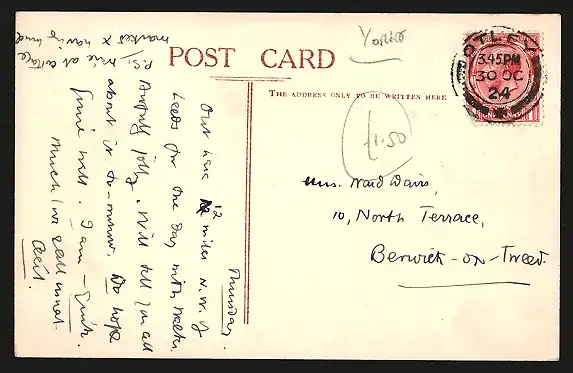 POST CARD
THE ADDRESS ONLY TO BE WRITTEN HERE
Yorks
£1.50
OTLEY
3.45PM
30 OC
24
Mrs. Ward Davis,
10, North Terrace,
Berwick-on-Tweed.
Thursday.
Out here 12 miles N.W. of
Leeds for the day with
Awfully jolly. Will tell you all
about it to-morrow. Do hope
you're well. I am - quite.
Much love
Cecil.
P.S. We're at
market & having